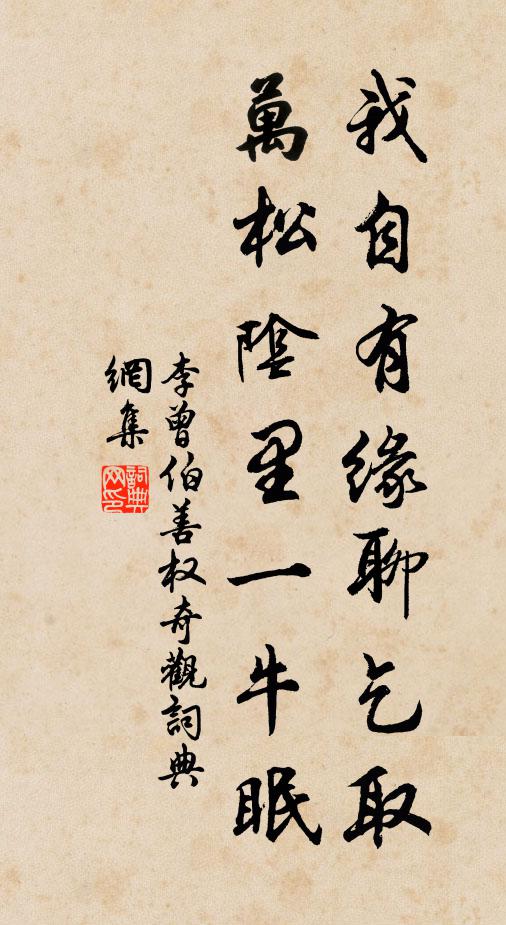 我自有緣聊乞取
萬松陰里一牛眠
李曾伯善权奇觀詞典
網集
詞典
网印